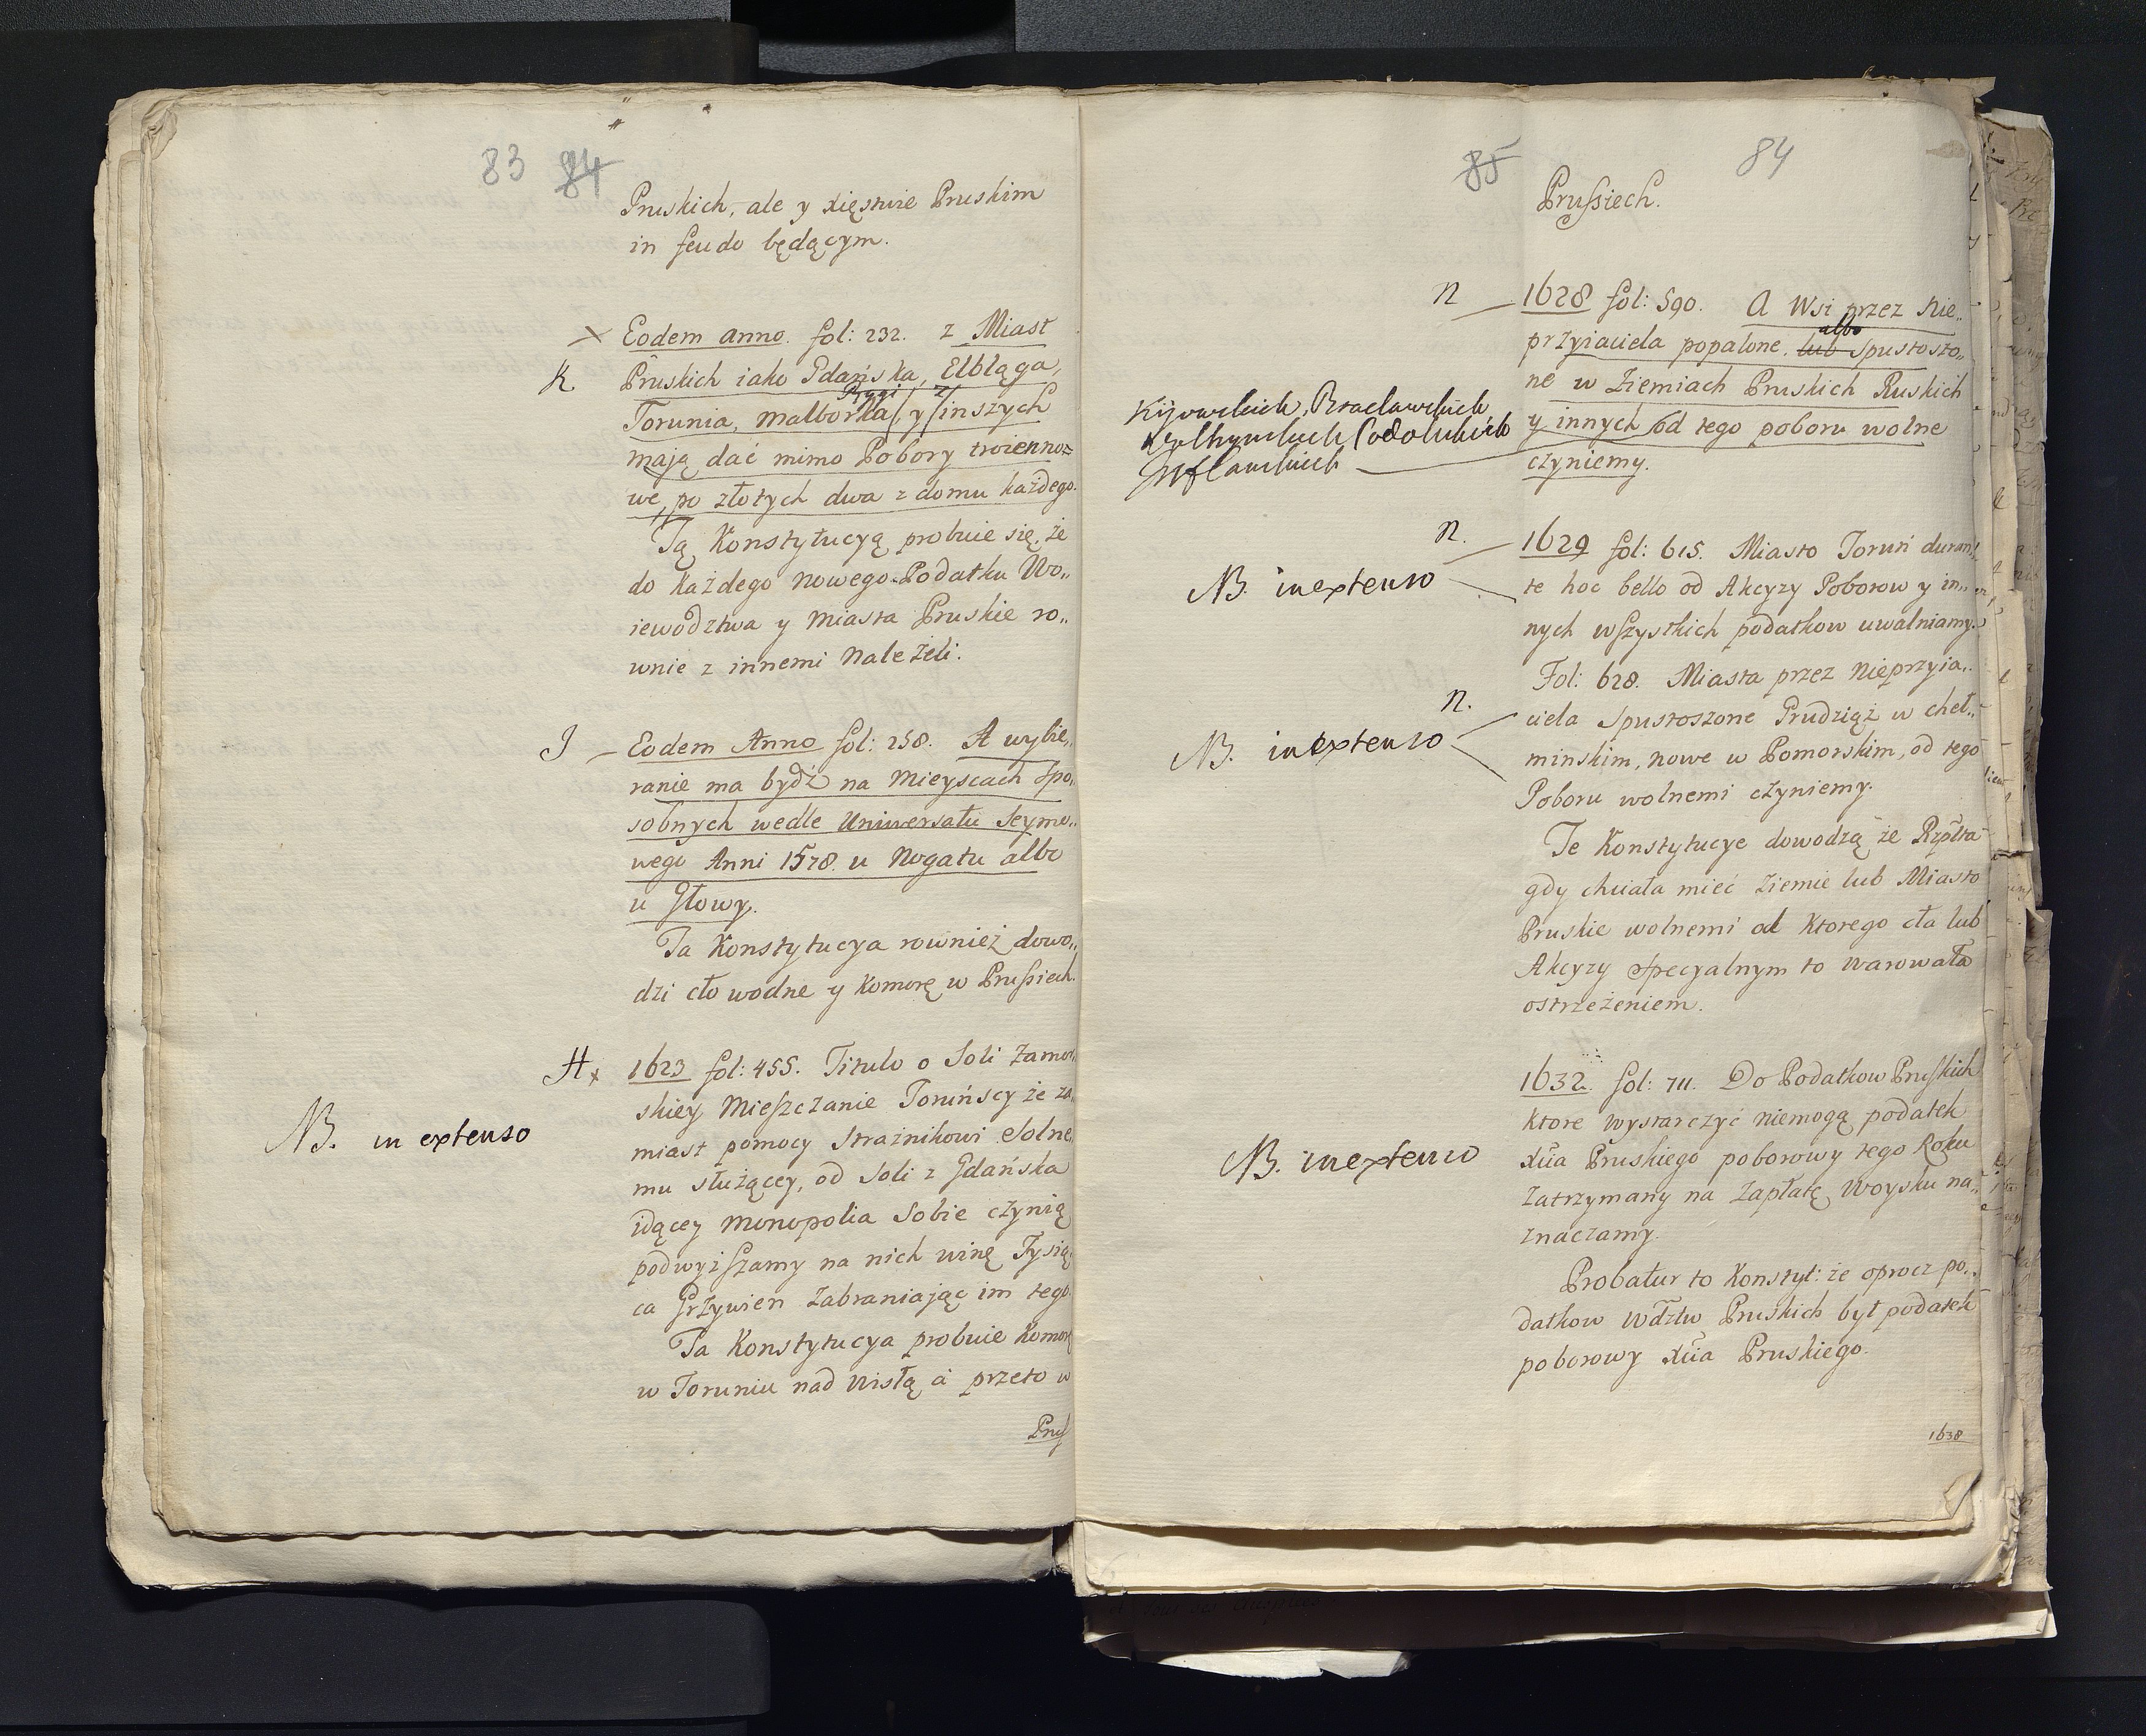 83 84
Pruskich, ale y xięstwie Pruskim
in feudo będącym.
Eodem anno. fol: 232. z Miast
K. Pruskich iako Gdańska, Elbląga,
Rygi z
Torunia, Malborka y inszych
mają dać mimo Pobory troienno=
we, po złotych dwa z domu każdego.
Tą Konstytucyą probuie się, że
do każdego nowego Podatku Wo„
iewodztwa y Miasta Pruskie ro„
wnie z innemi należeli.
J – Eodem Anno fol: 258. A wybie„
ranie ma bydź na Mieyscach spo„
sobnych wedle Uniwersału Seymo„
wego Anni 1578. u Nogatu albo
u Głowy.
Ta Konstytucya rownież dowo„
dzi cło wodne y Komorę w Prusiech.
H x 1623 fol: 455. Titulo o Soli Zamor„
skiey Mieszczanie Toruńscy że za„
NB. in extenso
miast pomocy Strażnikowi Solne„
mu służącey, od Soli z Gdańska
idącey monopolia Sobie czynią
podwyiszamy na nich winę Tysią„
ca Grzywien zabraniając im tego.
Ta Konstytucya probuie Komorę
w Toruniu nad Wisłą a przeto w
Prus
85 84
Prusiech.
n – 1628 fol: 590. A Wsi przez Nie„
albo
przyiaciela popalone, lub spustoszo„
ne w Ziemiach Pruskich Ruskich
Kijowskich, Bracławskich
Wołhynskich Podolskich
Inflanskich
y innych od tego poboru wolne
czyniemy.
n. – 1629 fol: 615. Miasto Toruń duran„
NB. in extenso
te hoc bello od Akcyzy Poborow y in„
nych wszystkich podatkow uwalniamy.
Fol: 628. Miasta przez Nieprzyia„
n.
ciela Spustoszone Grudziąż w cheł„
NB. in extenso
minskim, Nowe w Pomorskim, od tego
Poboru wolnemi czyniemy.
Te Konstytucye dowodzą że Rzplta
gdy chciała mieć Ziemie lub Miasto
Pruskie wolnemi od Ktorego cła lub
Akcyzy specyalnym to warowała
ostrzeżeniem.
1632. fol: 711. Do Podatkow Pruskich
ktore wystarczyć niemogą podatek
NB. in extenso
Xtia Pruskiego poborowy tego Roku
zatrzymany na Zapłatę Woysku na„
znaczamy.
Probatur to Konstyt: że oprocz po„
datkow Wdztw Pruskich był podatek
poborowy Xtia Pruskiego.
1638